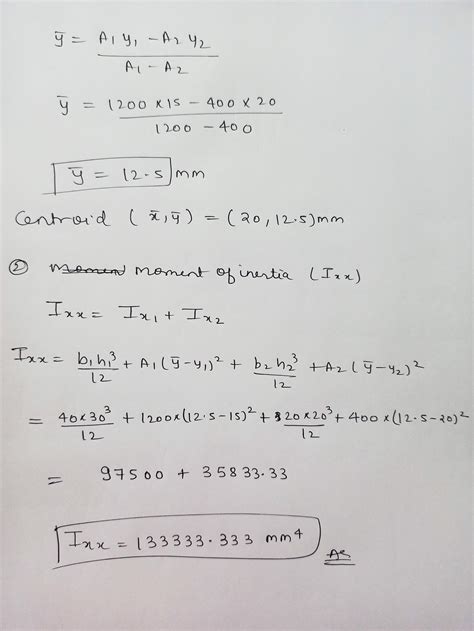 ȳ = A₁ y₁ − A₂ y₂ / A₁ − A₂
ȳ = 1200 × 15 − 400 × 20 / 1200 − 400
ȳ = 12.5 mm
Centroid ( x̄, ȳ ) = (20, 12.5) mm
② Moment Moment of inertia (Ixx)
Ixx = Ix₁ + Ix₂
Ixx = b₁h₁³/12 + A₁ (ȳ−y₁)² + b₂h₂³/12 + A₂ (ȳ−y₂)²
= 40×30³/12 + 1200×(12.5−15)² + 20×20³/12 + 400×(12.5−20)²
= 97500 + 35833.33
Ixx = 133333.333 mm⁴